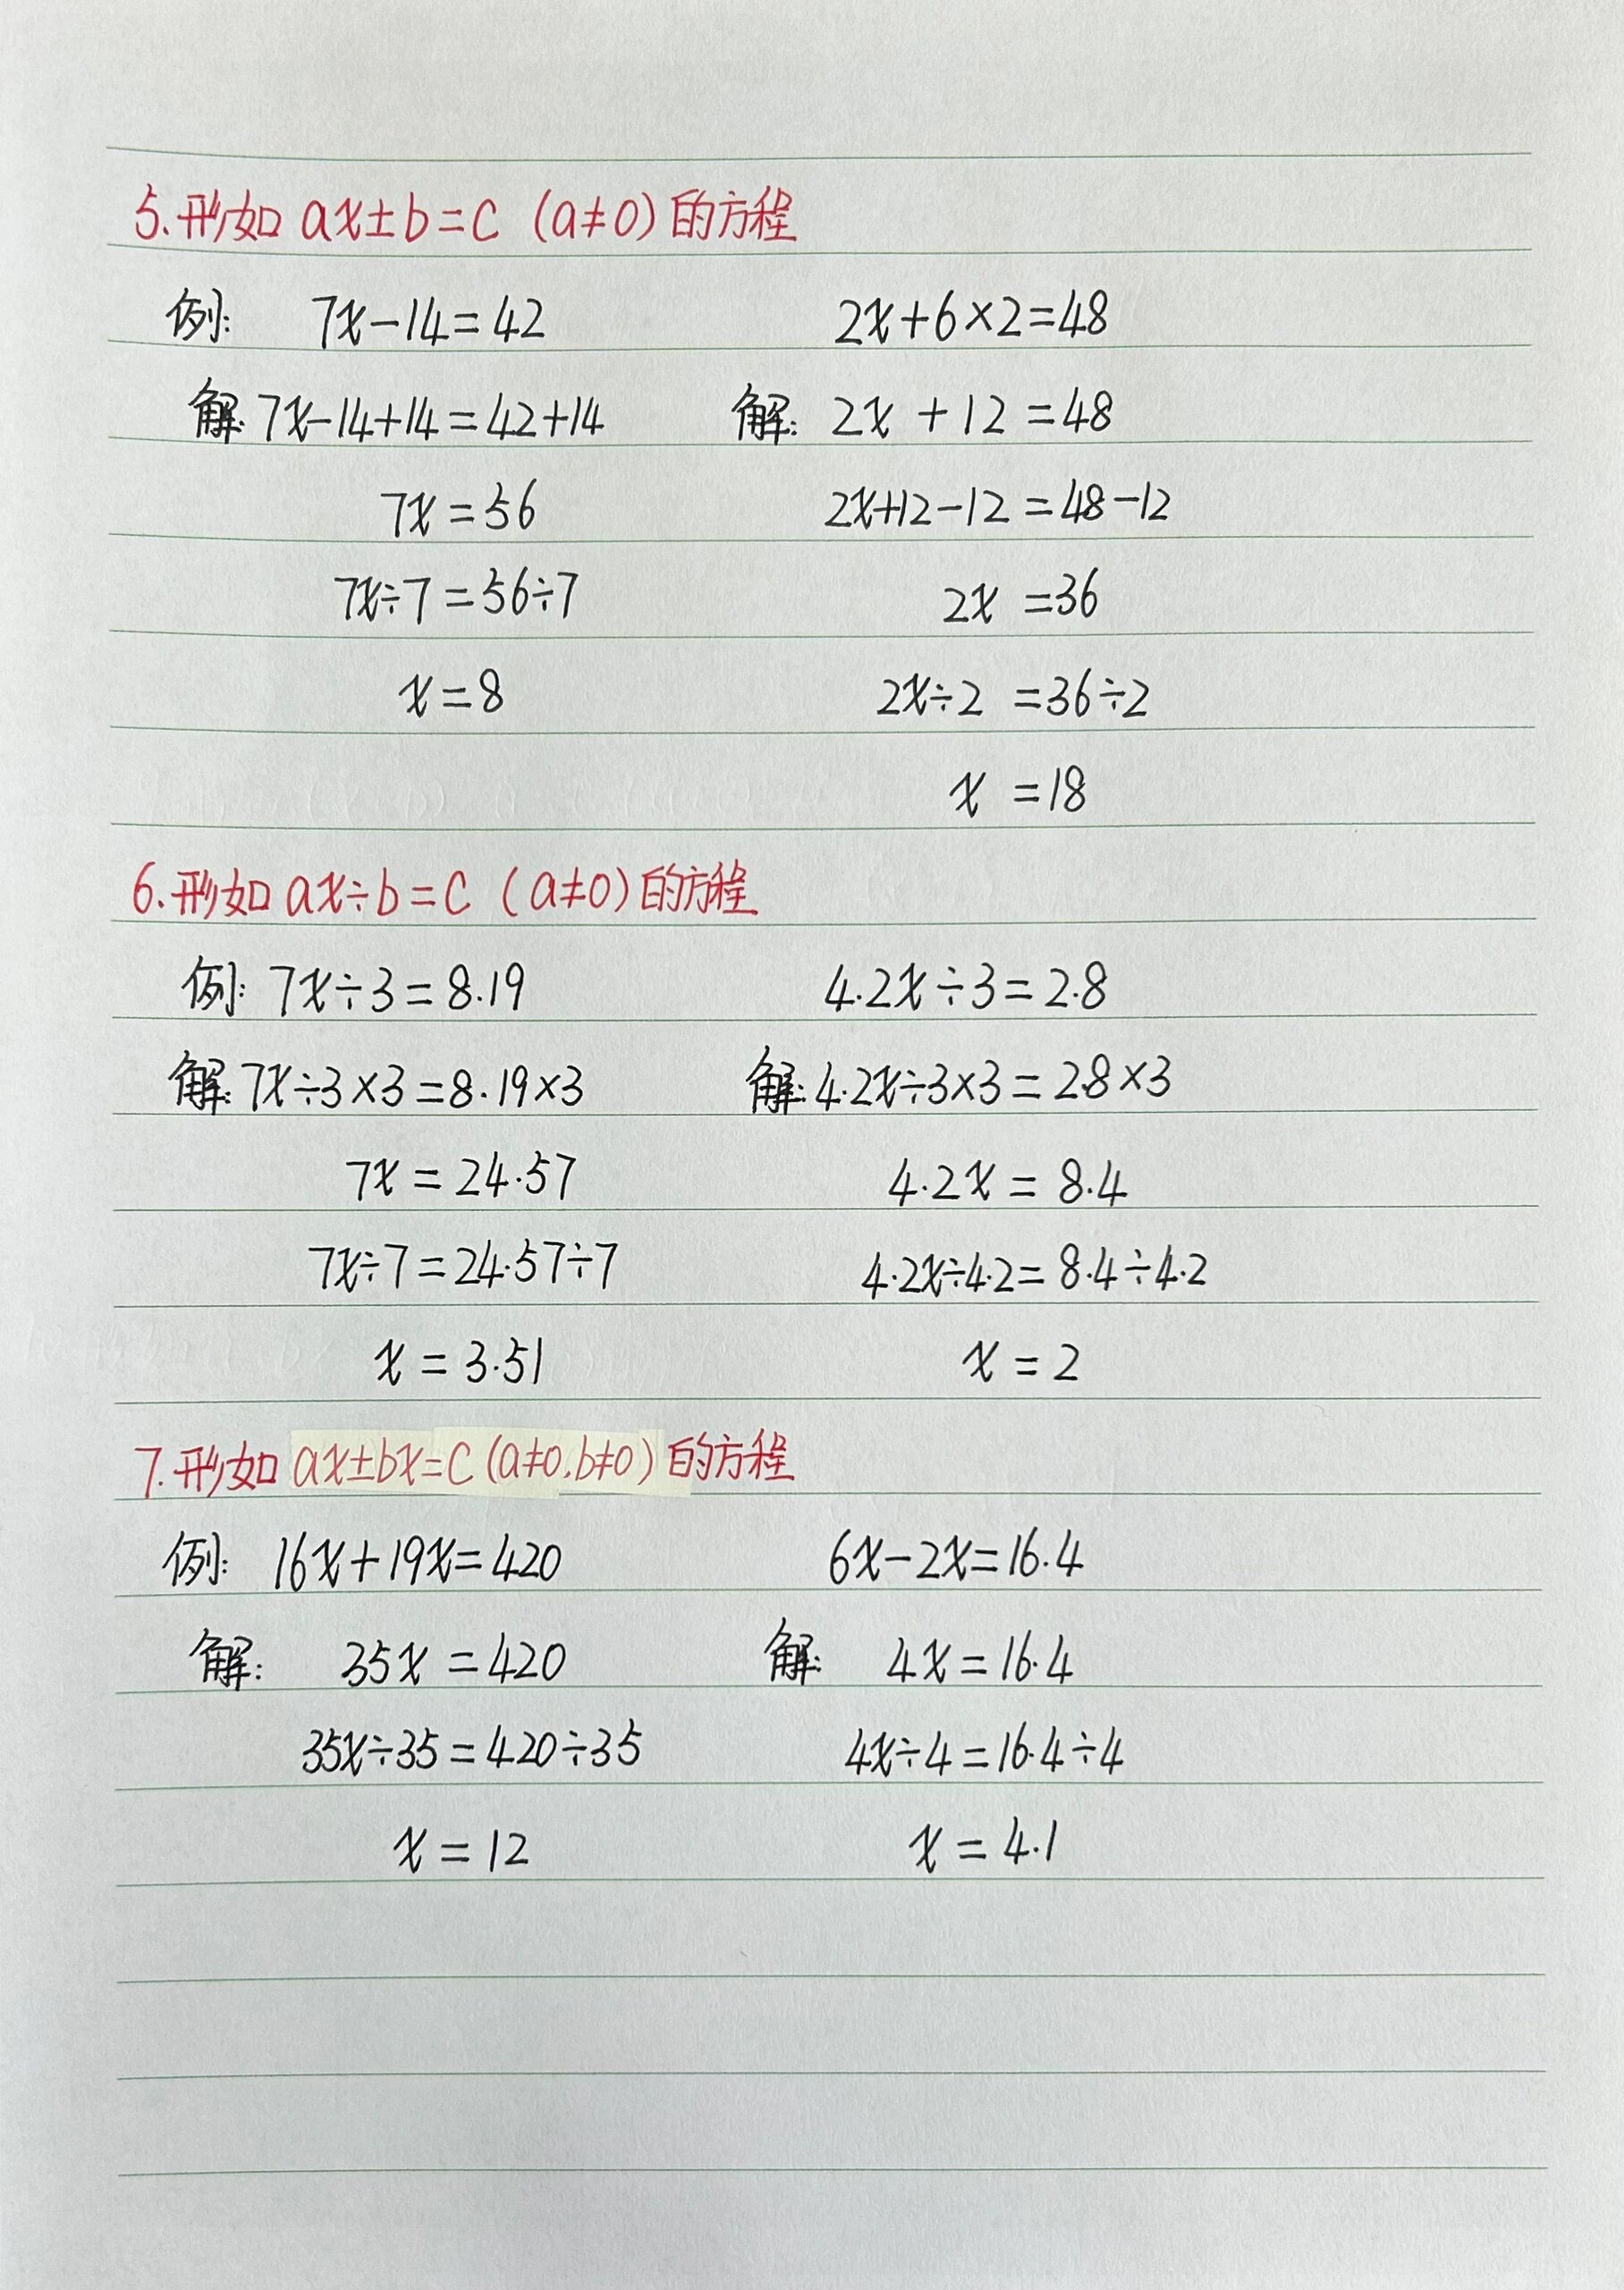 5.形如 ax±b=c (a≠0)的方程
例: 7x-14=42 2x+6×2=48
解:7x-14+14=42+14 解: 2x+12=48
7x=56 2x+12-12=48-12
7x÷7=56÷7 2x=36
x=8 2x÷2=36÷2
x=18
6.形如 ax÷b=c (a≠0)的方程
例: 7x÷3=8.19 4.2x÷3=2.8
解:7x÷3×3=8.19×3 解:4.2x÷3×3=2.8×3
7x=24.57 4.2x=8.4
7x÷7=24.57÷7 4.2x÷4.2=8.4÷4.2
x=3.51 x=2
7.形如 ax±bx=c(a≠0,b≠0)的方程
例: 16x+19x=420 6x-2x=16.4
解: 35x=420 解: 4x=16.4
35x÷35=420÷35 4x÷4=16.4÷4
x=12 x=4.1